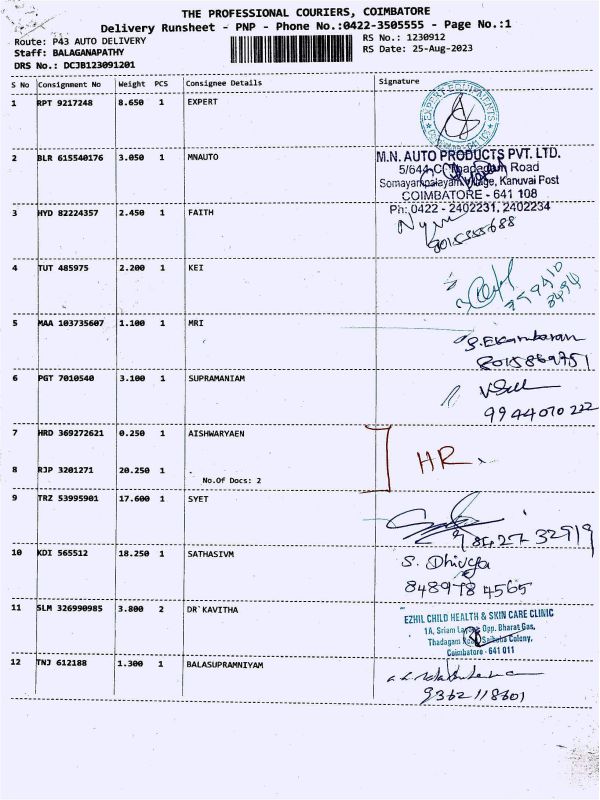 THE PROFESSIONAL COURIERS, COIMBATORE
Delivery Runsheet - PNP - Phone No.:0422-3505555 - Page No.:1
Route: P43 AUTO DELIVERY RS No.: 1230912
Staff: BALAGANAPATHY RS Date: 25-Aug-2023
DRS No.: DCJB123091201
S No Consignment No Weight PCS Consignee Details Signature
1 RPT 9217248 8.650 1 EXPERT
EXPERT EQUIPMENTS
2 BLR 615540176 3.050 1 MNAUTO
M.N. AUTO PRODUCTS PVT. LTD.
5/644-C, Thadagam Road
Somayampalayam Village, Kanuvai Post
COIMBATORE - 641 108
Ph: 0422 - 2402231, 2402234
3 HYD 82224357 2.450 1 FAITH
4 TUT 485975 2.200 1 KEI
5 MAA 103735607 1.100 1 MRI
S. Ekambaram
8015869751
6 PGT 7010540 3.100 1 SUPRAMANIAM
9944070222
7 HRD 369272621 0.250 1 AISHWARYAEN
HR
8 RJP 3201271 20.250 1
No.Of Docs: 2
9 TRZ 53995901 17.600 1 SYET
10 KDI 565512 18.250 1 SATHASIVM
S. Dhivya
8489784565
11 SLM 326990985 3.800 2 DR`KAVITHA
EZHIL CHILD HEALTH & SKIN CARE CLINIC
1A, Sriam Layout, Opp. Bharat Gas,
Thadagam Road, Saibaba Colony,
Coimbatore - 641 011
12 TNJ 612188 1.300 1 BALASUPRAMNIYAM
9362118301